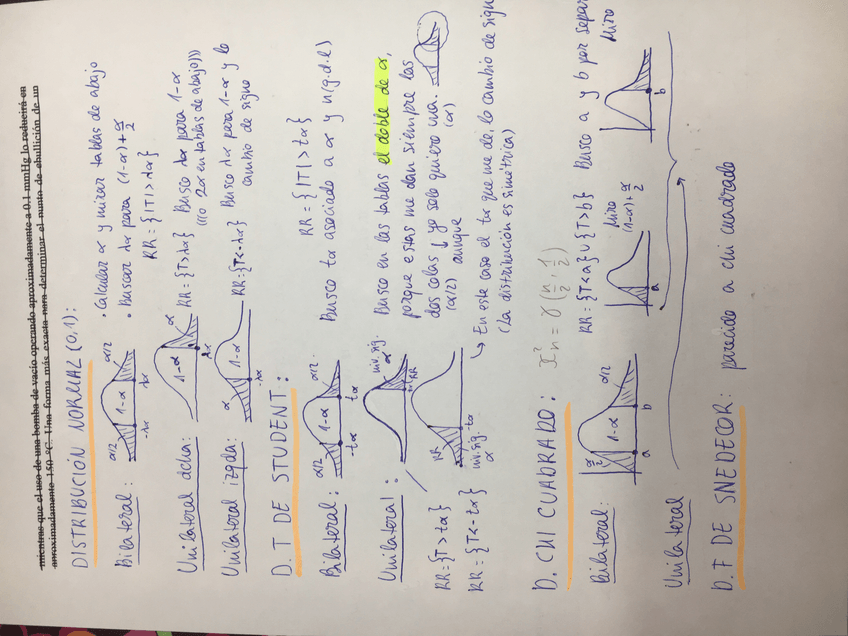 mientras que el uso de una bomba de vacío operando aproximadamente a 0.1 mmHg lo reducirá en
aproximadamente 150 ºC. Una forma más exacta para determinar el punto de ebullición de un
DISTRIBUCIÓN NORMAL (0,1):
Bilateral:
α/2 1-α α/2
-λα λα
• Calcular α y mirar tablas de abajo
• Buscar λα para (1-α)+α/2
RR={|T|>λα}
Unilateral dcha:
1-α α
λα
RR={T>λα} Busco λα para 1-α
(((o 2α en tablas de abajo)))
Unilateral izqda:
α 1-α
-λα
RR={T<-λα} Busco λα para 1-α y lo
cambio de signo
D. T DE STUDENT:
Bilateral:
α/2 α/2
1-α
-tα tα
RR={|T|>tα}
Busco tα asociado a α y n(g.d.l)
Unilateral:
niv.sig.
α
tα
RR
RR={T>tα}
Busco en las tablas el doble de α,
porque estas me dan siempre las
dos colas y yo solo quiero una.
(α/2) aunque (α)
RR={T<-tα}
RR
niv.sig. -tα
α
En este caso el tα que me de, lo cambio de signo
(La distribución es simétrica)
D. CHI CUADRADO: x²n = γ(n/2, 1/2)
Bilateral:
α/2 1-α α/2
a b
RR={T<a}∪{T>b} Busco a y b por separ
Miro
(1-α)+α/2
a
Miro
b
Unilateral
D. F DE SNEDECOR: parecido a chi cuadrado